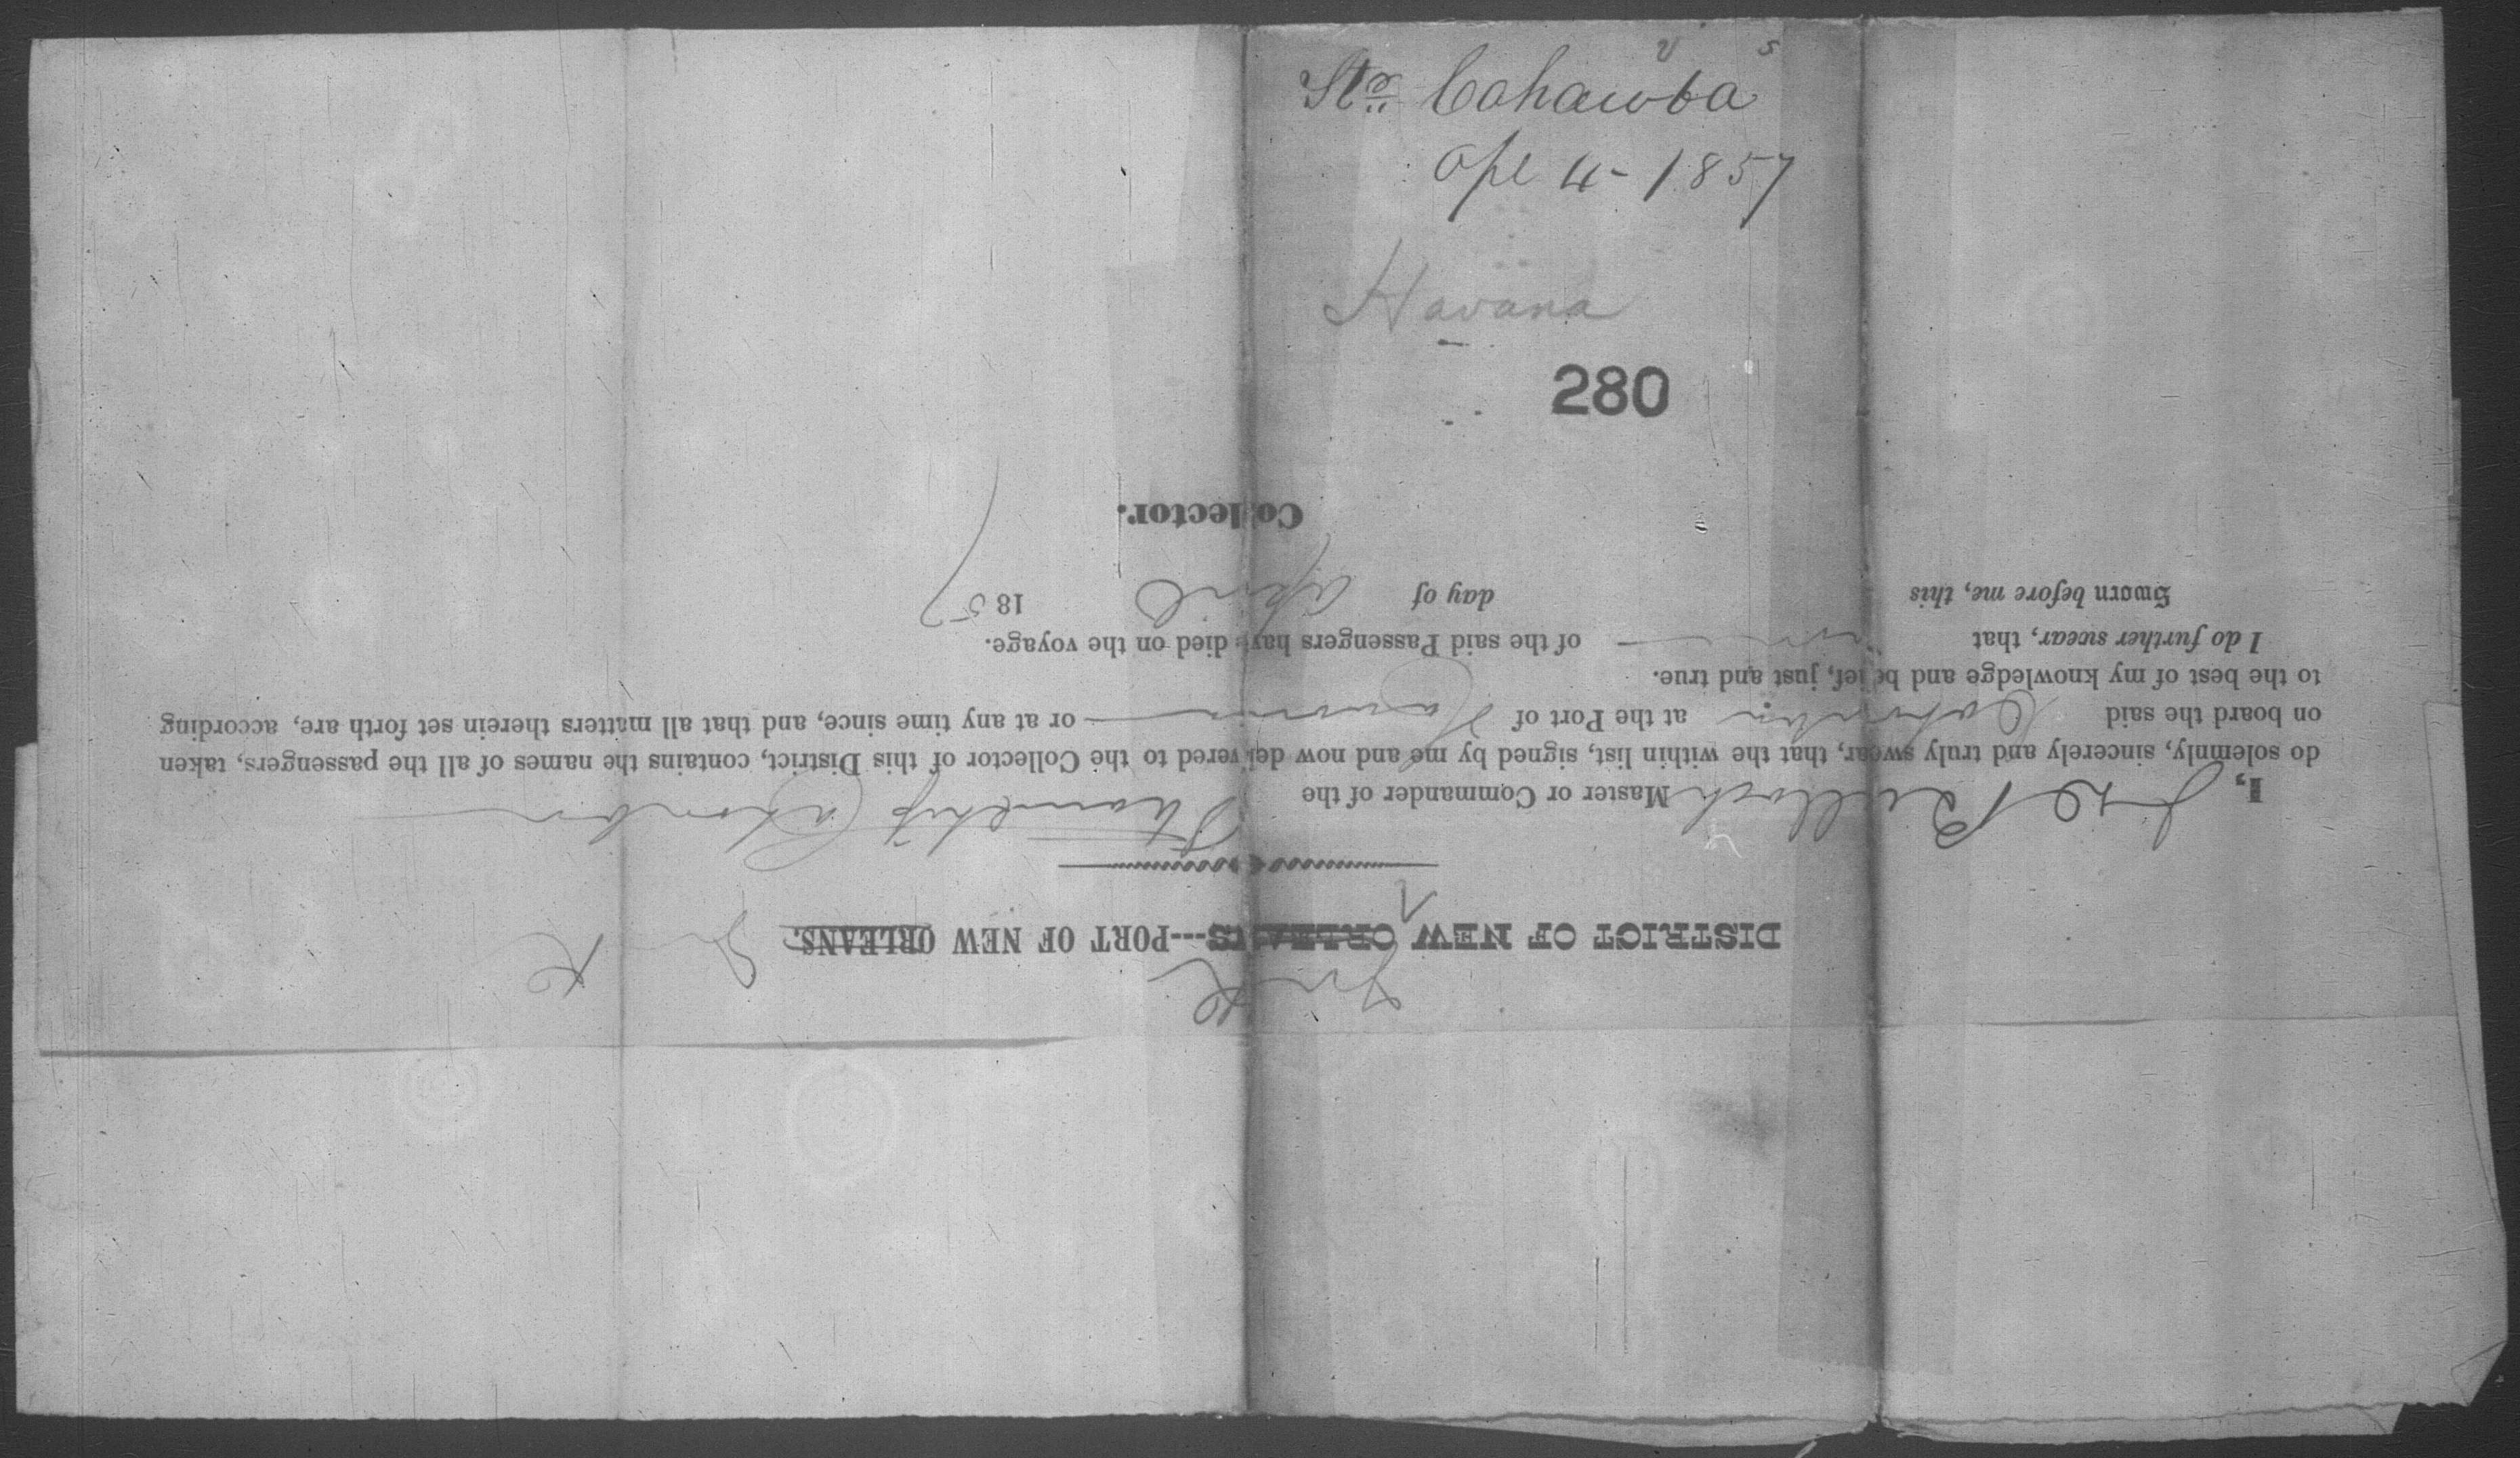 Str Cahawba
Apl 4 - 1857
Havana
280
DISTRICT OF NEW ORLEANS---PORT OF NEW ORLEANS.
York
York
I, Jas D Bulloch Master or Commander of the Steamship Cahawba
do solemnly, sincerely and truly swear, that the within list, signed by me and now delivered to the Collector of this District, contains the names of all the passengers, taken
on board the said Cahawba at the Port of Havana or at any time since, and that all matters therein set forth are, according
to the best of my knowledge and belief, just and true.
I do further swear, that of the said Passengers have died on the voyage.
Sworn before me, this day of April 1857
Collector.